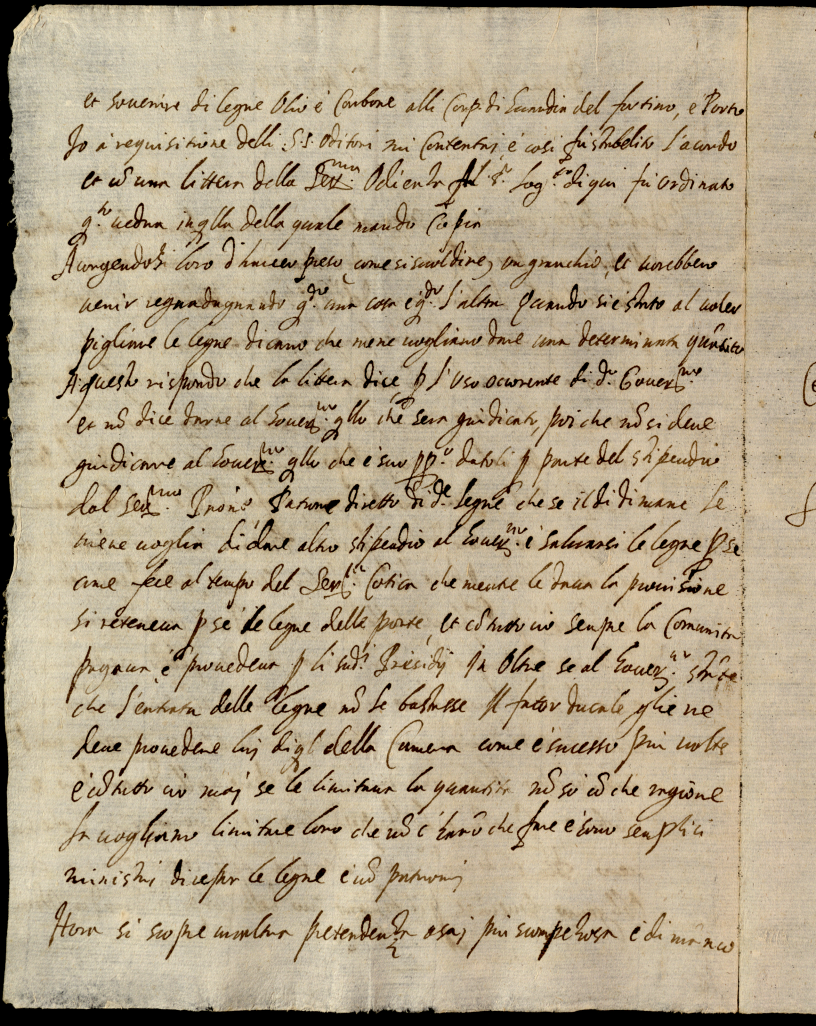 et souenire di legne Olio è Carbone alli Corp. di Guardia del fortino, e Porto
Io à requisitione delli SS. Oditori mi Contentaj, è cosi fu stabelito l'acordo
et cō una littera della Ser.ma Odienza al S.r Log.te di qui fu ordinato
q.to uedra in qlla della quale mando Copia
Acorgendosi loro d'hauer preso, come si suol dire, un granchio, et uorebbero
uenir reguadagnando q.do una cosa è q.do l'altra quando si è stato al uoler
pigliare le legne dicano che mene uogliano dare una determinata quātita
A questo rispondo che la littera dice p l'uso ocorente di d.o Gouer.re
et nō dice darne al Gouer.re qllo che sera giudicato, poi che nō si deue
giudicare al Gouer.re qllo che è suo pp.o datoli p parte del stipendio
dal Ser.mo Prone Patrone diretto di d.e legne che se il di di mane le
uiene uoglia di dare altro stipendio al Gouer.re è saluarsi le legne p se
come fece al tempo del Cotica che mentre le daua la prouisione
si reteneua p se le legne delle porte, et cō tutto cio senpre la Comunita
pagaua, è prouedeua p li sud.i Presidij In Oltre se al Gouer.re
che l'entrata delle legne nō le bastasse Il fator ducale gliene
deue prouedere luj di ql della Camera come è sucesso piu uolte
è cō tutto cio maj se le limitaua la quantita nō so cō che ragione
la uogliano limitare loro che nō c'hano che fare è sono senplici
ministri di cepar le legne è nō patronj
Hora si scopre un altra pretendenza asaj piu sumpetosa è di manco